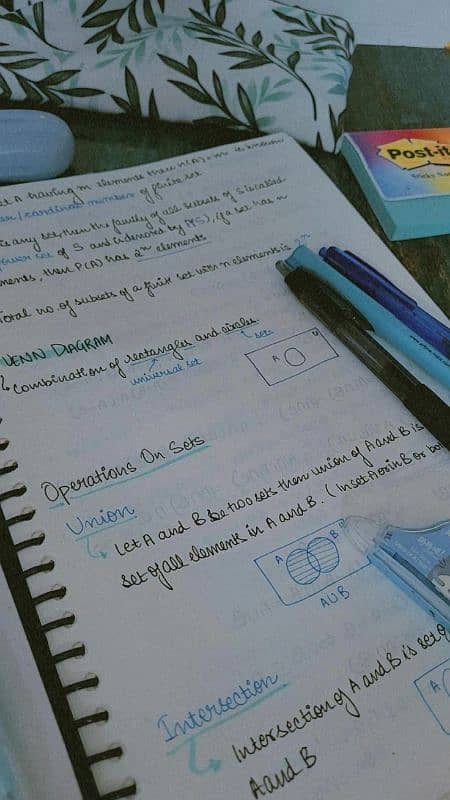 Post-it
A having m elements then n(A) = m is known
/cardinal number of finite set
any set, then the family of all subsets of S is called
power set of S and is denoted by P(S), if a set has n
ments, then P(A) has 2ⁿ elements
Total no. of subsets of a finite set with n elements is 2ⁿ
VENN DIAGRAM
Combination of rectangles and circles.
universal set
sets
A
U
Operations On Sets
Union
Let A and B be two sets then union of A and B is
set of all elements in A and B. (In set A or in B or bo
A
B
AUB
Intersection
Intersection of A and B is set o
A and B
A